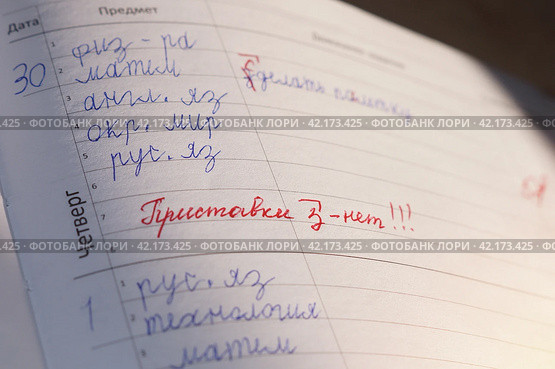 Дата Предмет
30
1 физ-ра
2 матем сделать памятку
3 англ. яз
4 окр. мир
.425 · ФОТОБАНК ЛОРИ · 42.173.425 · ФОТОБАНК ЛОРИ · 42.173.425 · ФОТОБАНК ЛОРИ · 42.173.425 · ФОТОБАНК
5 рус. яз
6
7 Приставки з-нет!!!
.425 · ФОТОБАНК ЛОРИ · 42.173.425 · ФОТОБАНК ЛОРИ · 42.173.425 · ФОТОБАНК ЛОРИ · 42.173.425 · ФОТОБАНК
четверг
1
1 рус. яз
2 технология
3 матем